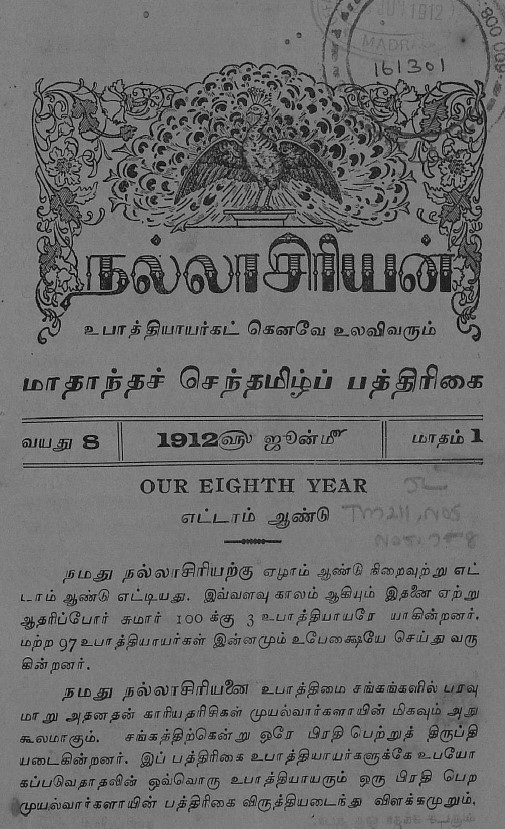 1912
MADRAS
161301
நல்லாசிரியன்
உபாத்தியாயர்கட் கெனவே உலவிவரும்
மாதாந்தச் செந்தமிழ்ப் பத்திரிகை
வயது 8 1912௵ ஜூன்௴ மாதம் 1
OUR EIGHTH YEAR
எட்டாம் ஆண்டு
நமது நல்லாசிரியற்கு ஏழாம் ஆண்டு நிறைவுற்று எட்
டாம் ஆண்டு எட்டியது. இவ்வளவு காலம் ஆகியும் இதனை ஏற்று
ஆதரிப்போர் சுமார் 100 க்கு 3 உபாத்தியாயரே யாகின்றனர்.
மற்ற 97 உபாத்தியாயர்கள் இன்னமும் உபேக்ஷையே செய்து வரு
கின்றனர்.
நமது நல்லாசிரியனை உபாத்திமை சங்கங்களில் பரவு
மாறு அதனதன் காரியதரிசிகள் முயல்வார்களாயின் மிகவும் அநு
கூலமாகும். சங்கத்திற்கென்று ஒரே பிரதி பெற்றுத் திருப்தி
யடைகின்றனர். இப் பத்திரிகை உபாத்தியாயர்களுக்கே உபயோ
கப்படுவதாதலின் ஒவ்வொரு உபாத்தியாயரும் ஒரு பிரதி பெற
முயல்வார்களாயின் பத்திரிகை விருத்தியடைந்து விளக்கமுறும்.